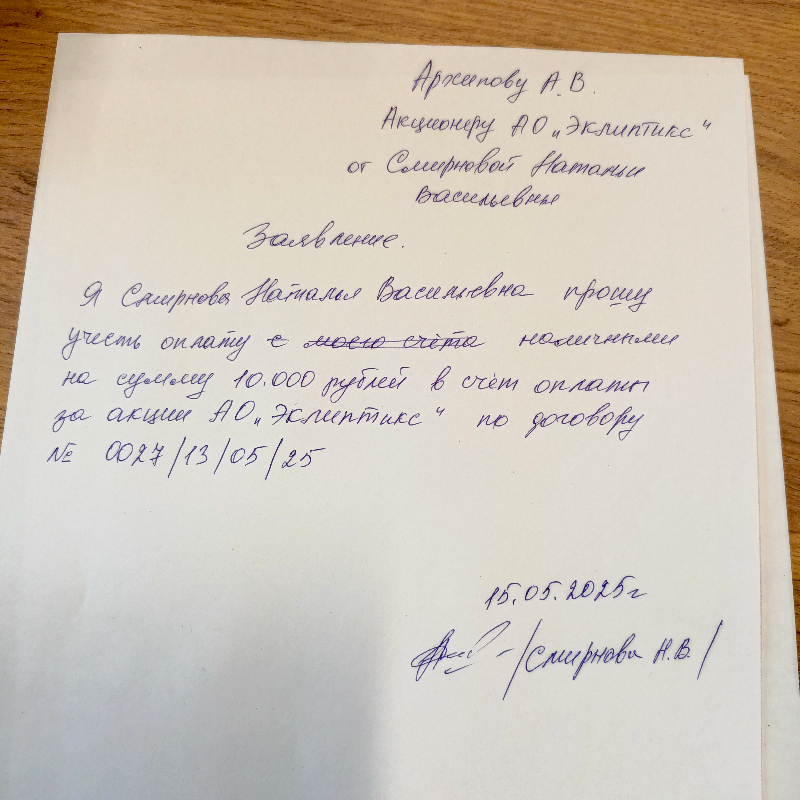 Архипову А.В.
Акционеру АО „Эклиптикс"
от Смирновой Натальи
Васильевны
Заявление.
Я Смирнова Наталья Васильевна прошу
учесть оплату с моего счёта наличными
на сумму 10.000 рублей в счёт оплаты
за акции АО „Эклиптикс" по договору
№ 0027/13/05/25
15.05.2025г
/Смирнова Н.В./